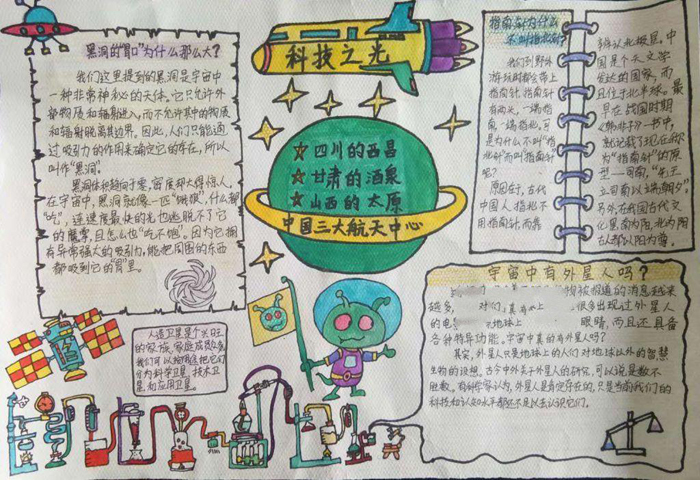 科技之光
黑洞的“胃口”为什么那么大？
我们这里提到的黑洞是宇宙中
一种非常神秘的天体。它只允许外
部物质和辐射进入，而不允许其中的物质
和辐射脱离其边界。因此，人们只能通
过吸引力的作用来确定它的存在，所以
叫作“黑洞”。
黑洞体积趋向于零，密度却大得惊人。
在宇宙中，黑洞就像一匹“饿狼”，什么都
“吃”，连速度最快的光也逃脱不了它
的魔掌，且怎么也“吃不饱”。因为它拥
有异常强大的吸引力，能把周围的东西
都吸到它的“胃”里。
四川的西昌
甘肃的酒泉
山西的太原
中国三大航天中心
指南针为什么
不叫指北针？
我们到野外
游玩时都会带上
指南针。指南针
有两头，一端指
南，一端指北，可
是为什么不叫“指
北针”而叫“指南针”
呢？
原因在于，古代
中国人指北不
用指南针，而靠
辨认北极星，中
国是个天文学
发达的国家，而
且位于北半球。最
早在战国时期
《韩非子》一书中，
就记载了现在称
为“指南针”的原
型—司南，“先王
立司南以端朝夕”
另外在我国古代文
化里南为阳，北为阴
在君以阳为尊。
人造卫星是个兴旺
的家族，
我们可以按用途把它们
分为科学卫星，技术卫
星，和应用卫星。
宇宙中有外星人吗？
被报道的消息越来
越多，对们 真 很多出现过外星人
的电 地球上 眼睛，而且还具备
各种特异功能。宇宙中真的有外星人吗？
其实，外星人只是地球上的人们对地球以外的智慧
生物的设想。古今中外关于外星人的研究，可以说是数不
胜数。有科学家认为，外星人是肯定存在的，只是当前我们的
科技和认知水平都还不足以去认识它们。